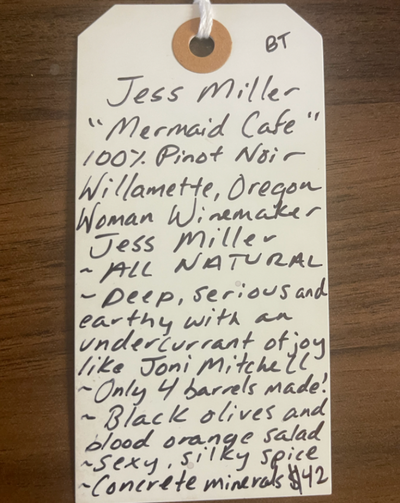 BT
Jess Miller
"Mermaid Cafe"
100% Pinot Noir
Willamette, Oregon
Woman Winemaker
Jess Miller
~ ALL NATURAL
~ Deep, serious and
earthy with an
undercurrant of joy
like Joni Mitchell
~ Only 4 barrels made!
~ Black olives and
blood orange salad
~ sexy, silky spice
~ Concrete minerals $42